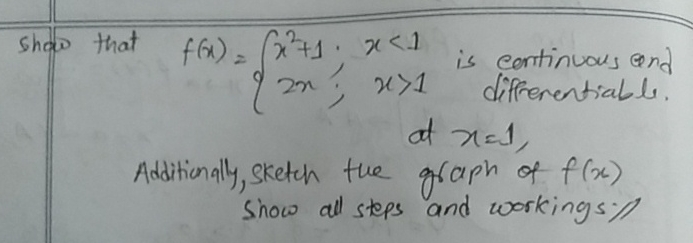 Show that f(x) = { x²+1 ; x<1
2x ; x>1
is continuous and
differentiable.
at x=1,
Additionally, sketch the graph of f(x)
Show all steps and workings.//